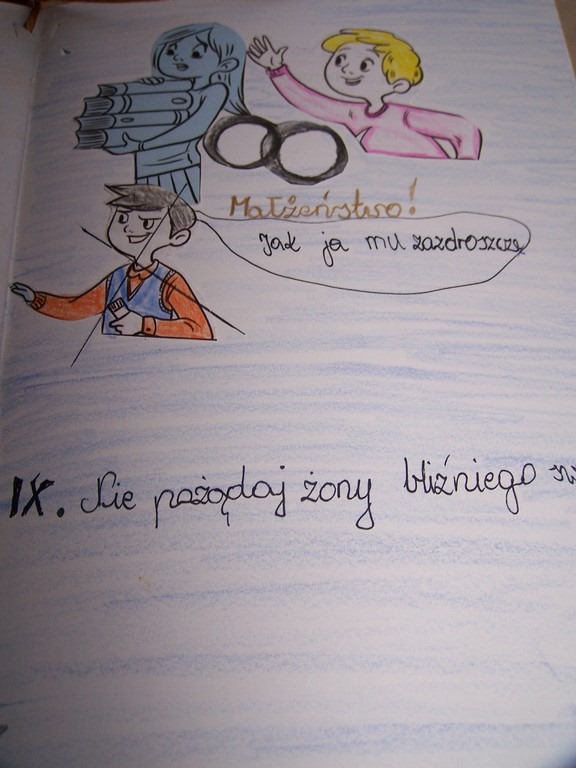 Małżeństwo!
Jak ja mu zazdroszczę
IX. Nie pożądaj żony bliźniego